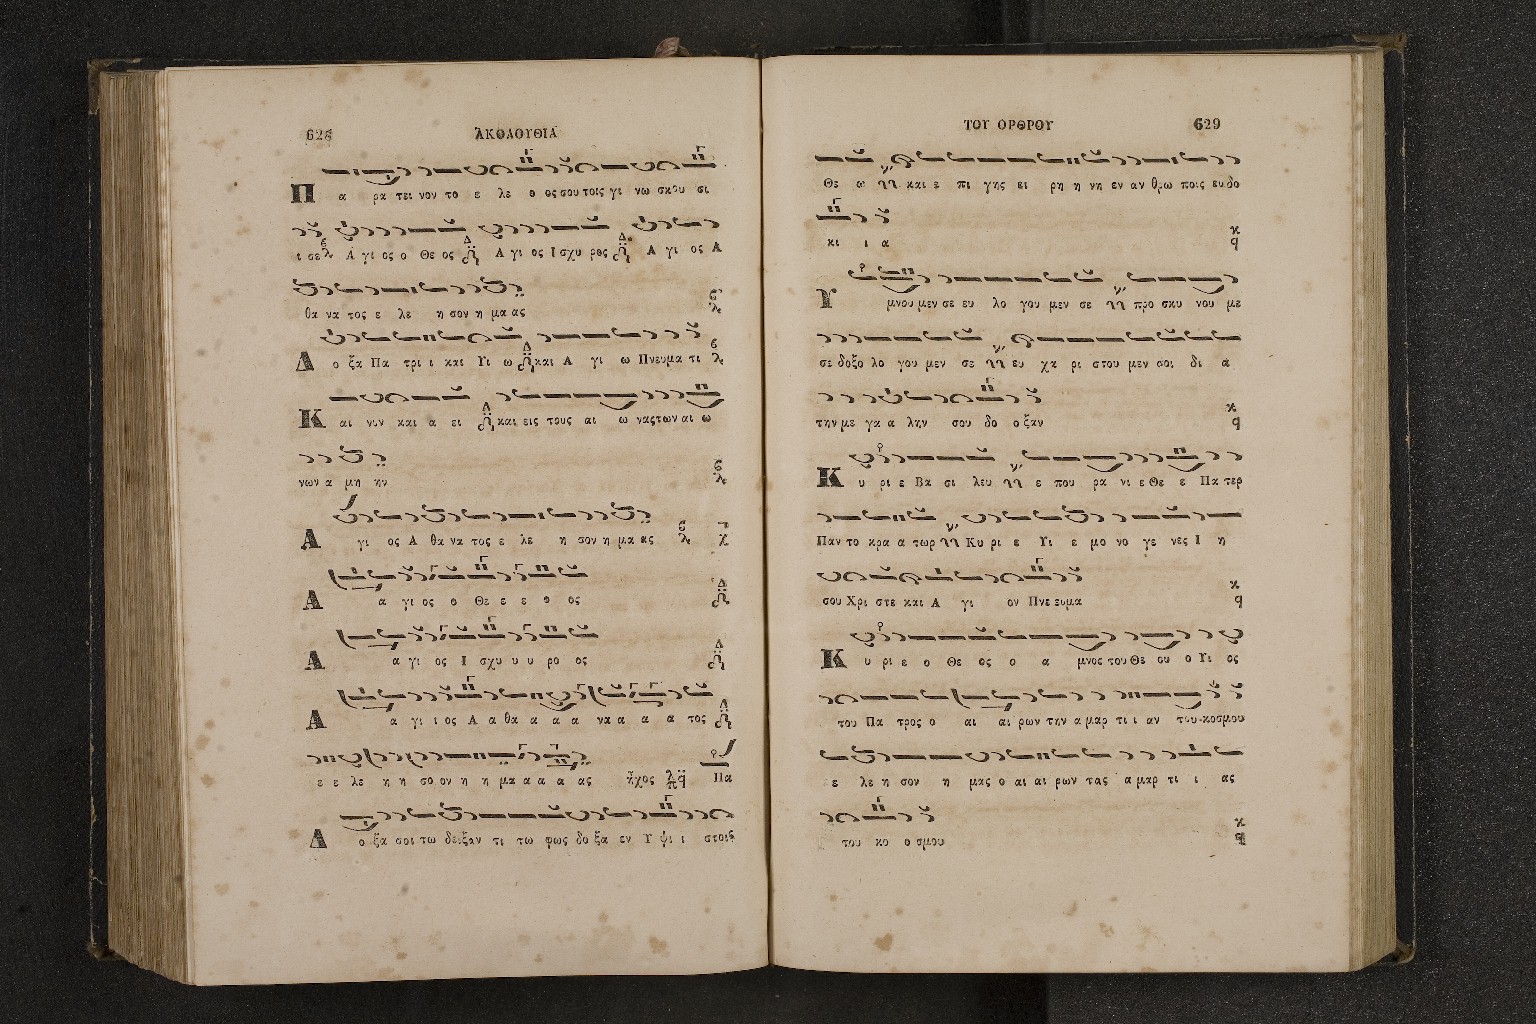 628 ΑΚΟΛΟΥΘΙΑ
Πα ρα τει νον το ε λε ο ος σου τοις γι νω σκου σι
ι σε Α γι ος ο Θε ος Α γι ος Ι σχυ ρος Α γι ος Α
θα να τος ε λε η σον η μα ας
Δο ξα Πα τρι ι και Υι ω και Α γι ω Πνευμα τι
Και νυν και α ει και εις τους αι ω νας των αι ω
νων α μη ην
Α γι ος Α θα να τος ε λε η σον η μα ας
Α α γι ος ο Θε ε ε ο ος
Α α γι ος Ι σχυ υ υ ρο ος
Α α γι ι ος Α α θα α α α να α α α τος
ε ε λε η η σο ον η η μα α α α ας ἦχος Πα
Δο ξα σοι τω δειξαν τι τω φως δο ξα εν Υ ψι ι στοις
ΤΟΥ ΟΡΘΡΟΥ 629
Θε ω και ε πι γης ει ρη η νη εν αν θρω ποις ευ δο
κι ι α
Υ μνου μεν σε ευ λο γου μεν σε προ σκυ νου με
σε δοξο λο γου μεν σε ευ χα ρι στου μεν σοι δι α
την με γα α λην σου δο ο ξαν
Κυ ρι ε Βα σι λευ ε που ρα νι ε Θε ε Πα τερ
Παν το κρα α τωρ Κυ ρι ε Υι ε μο νο γε νες Ι η
σου Χρι στε και Α γι ον Πνε ευμα
Κυ ρι ε ο Θε ος ο α μνος του Θε ου ο Υι ος
του Πα τρος ο αι αι ρων την α μαρ τι ι αν του κοσμου
ε λε η σον η μας ο αι αι ρων τας α μαρ τι ι ας
του κο ο σμου